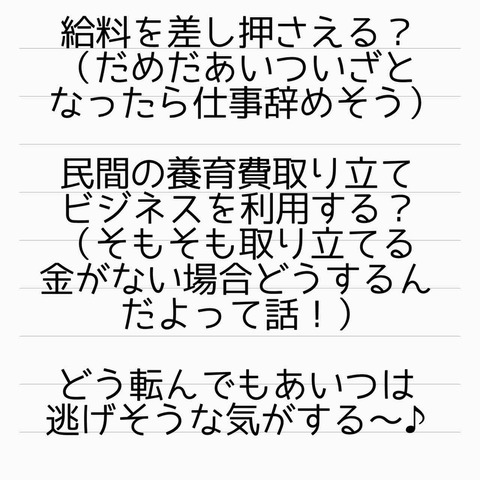 給料を差し押さえる？
（だめだあいついざと
なったら仕事辞めそう）
民間の養育費取り立て
ビジネスを利用する？
（そもそも取り立てる
金がない場合どうするん
だよって話！）
どう転んでもあいつは
逃げそうな気がする〜♪